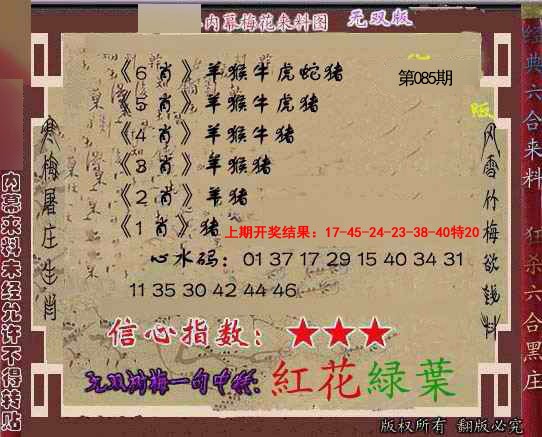 内幕梅花来料图 无双版
第085期
《6肖》羊猴牛虎蛇猪
《5肖》羊猴牛虎猪
《4肖》羊猴牛猪
《3肖》羊猴猪
《2肖》羊猪
《1肖》猪
上期开奖结果：17-45-24-23-38-40特20
心水码：01 37 17 29 15 40 34 31
11 35 30 42 44 46
信心指数：★★★
紅花綠葉
寒梅屠庄生肖
风雪竹梅欲钱料
内幕来料未经允许不得转贴
经典六合来料 狂杀六合黑庄
版权所有 翻版必究